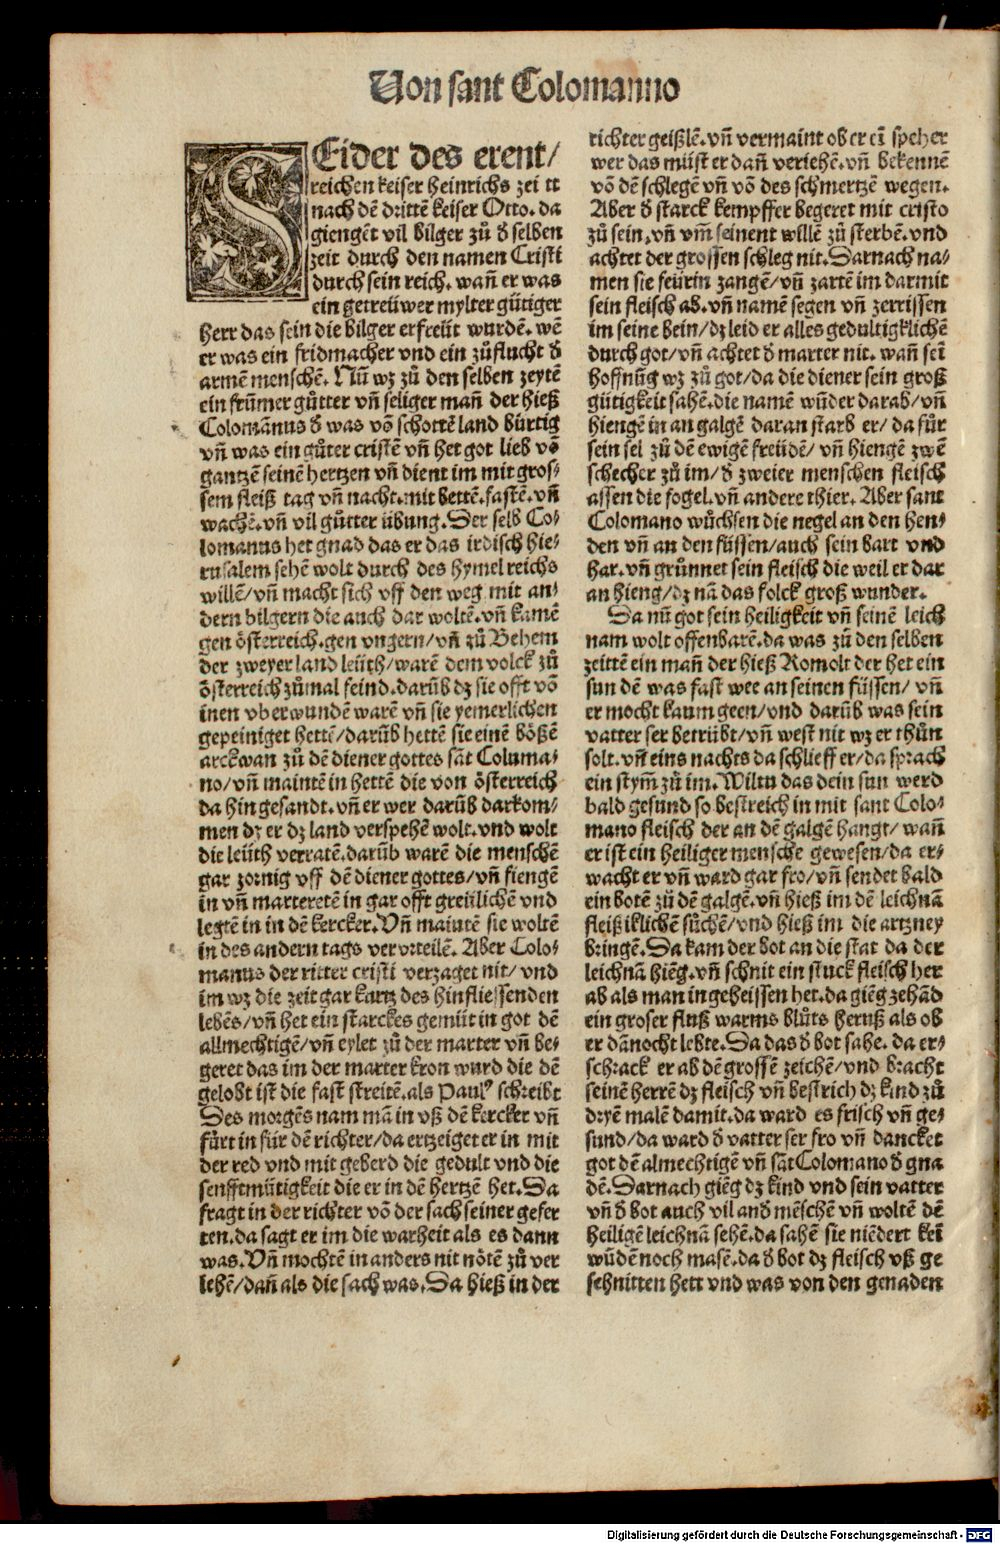 Von sant Colomanno
SEider des erent/
reichen keiser heinrichs zei tt
nach dē drittē keiser Otto. da
giengēt vil bilger zů d̕ selben
zeit durch den namen Cristi
durch sein reich. wañ er was
ein getreüwer mylter gütiger
herr das sein die bilger erfreüt wurdē. wē
er was ein fridmacher vnd ein zůflucht d̕
armē menschē. Nun̄ wz zů den selben zeytē
ein frum̄er gůtter vn̄ seliger mañ der hieß
Colomānus d̕ was vō schottē land bürtig
vn̄ was ein gůter cristē vn̄ het got lieb vō
gantzē seinē hertzen vn̄ dient im mit gros⸗
sem fleiß tag vn̄ nacht. mit bettē. fastē. vn̄
wachē. vn̄ vil gůtter übung. Der selb Co⸗
lomanus het gnad das er das irdisch hie⸗
rusalem sehē wolt durch des hymel reichs
willē/ vn̄ macht sich vff den weg mit an⸗
dern bilgern die auch dar woltē. vn̄ kamē
gen österreich. gen vngern/ vn̄ zů Behem
der zweyer land leüth/ warē dem volck zů
österreich zůmal feind. darūb dz sie offt vō
inen vberwundē warē vn̄ sie yemerlichen
gepeiniget hettē/ darūb hettē sie einē bößē
arckwan zů dē diener gottes sāt Columa⸗
no/ vn̄ maintē in hettē die von österreich
da hin gesandt. vn̄ er wer darūb darkom⸗
men dz er dz land verspehē wolt. vnd wolt
die leüth verratē. darūb warē die menschē
gar zornig vff dē diener gottes/ vn̄ fiengē
in vn̄ marteretē in gar offt greülichē vnd
legtē in in dē kercker. Vn̄ maintē sie woltē
in des andern tags vervrteilē. Aber Colo⸗
manus der ritter cristi verzaget nit/ vnd
im wz die zeit gar kurtz des hinfliessenden
lebēs/ vn̄ het ein starckes gemüt in got dē
allmechtigē/ vn̄ eylet zů der marter vn̄ be⸗
geret das im der marter kron wurd die dē
gelobt ist die fast streitē. als Paulꝰ schreibt
Des morgēs nam mā in vß dē kercker vn̄
fürt in für dē richter/ da ertzeiget er in mit
der red vnd mit geberd die gedult vnd die
senfftmütigkeit die er in dē hertzē het. Da
fragt in der richter vō der sach seiner gefer
ten. da sagt er im die warheit als es dann
was. Vn̄ mochtē in anders nit nötē zů ver
iehē/ dañ als die sach was. Da hieß in der
richter geißlē. vn̄ vermaint ob er eī speher
wer das müst er dañ veriehē. vn̄ bekennē
vō dē schlegē vn̄ vō des schmertzē wegen.
Aber d̕ starck kempffer begeret mit cristo
zů sein. vn̄ vm̄ seinent willē zů sterbē. vnd
achtet der grossen schleg nit. Darnach na⸗
men sie feürin zangē/ vn̄ zartē im darmit
sein fleisch ab. vn̄ namē segen vn̄ zerrissen
im seine bein/ dz leid er alles gedultigklichē
durch got/ vn̄ achtet d̕ marter nit. wañ seī
hoffnūg wz zů got/ da die diener sein groß
gütigkeit sahē. die namē wūder darab/ vn̄
hiengē in an galgē daran starb er/ da für
sein sel zů dē ewigē freüdē/ vn̄ hiengē zwē
schecher zů im/ d̕ zweier menschen fleisch
assen die fogel. vn̄ andere thier. Aber sant
Colomano wůchsen die negel an den hen⸗
den vn̄ an den füssen/ auch sein bart vnd
har. vn̄ grünnet sein fleisch die weil er dar
an hieng/ dz nā das folck groß wunder.
Da nū got sein heiligkeit vn̄ seinē leich
nam wolt offenbarē. da was zů den selben
zeittē ein mañ der hieß Romolt der het ein
sun dē was fast wee an seinen füssen/ vn̄
er mocht kaum geen/ vnd darūb was sein
vatter ser betrübt/ vn̄ west nit wz er thůn
solt. vn̄ eins nachts da schlieff er/ da sprach
ein stym̄ zů im. Wiltu das dein sun werd
bald gesund so bestreich in mit sant Colo⸗
mano fleisch der an dē galgē hangt/ wañ
er ist ein heiliger mensche gewesen/ da er⸗
wacht er vn̄ ward gar fro/ vn̄ sendet bald
ein botē zů dē galgē. vn̄ hieß im dē leichnā
fleißiklichē sůchē/ vnd hieß im die artzney
bringē. Da kam der bot an die stat da der
leichnā hiēg. vn̄ schnit ein stuck fleisch her
ab als man in geheissen het. da giēg zehād
ein groser fluß warms blůts heruß als ob
er dānocht lebte. Da das d̕ bot sahe. da er⸗
schrack er ab dē grossē zeichē/ vnd bracht
seinē herrē dz fleisch vn̄ bestrich dz kind zů
dryē malē damit. da ward es frisch vn̄ ge⸗
sund/ da ward d̕ vatter ser fro vn̄ dancket
got dē almechtigē vn̄ sāt Colomano d̕ gna
dē. Darnach giēg dz kind vnd sein vatter
vn̄ d̕ bot auch vil and̕ mēschē vn̄ woltē dē
heiligē leichnā sehē. da sahē sie niēdert keī
wūdē noch masē. da d̕ bot dz fleisch vß ge
schnitten hett vnd was von den genaden
Digitalisierung gefördert durch die Deutsche Forschungsgemeinschaft - DFG